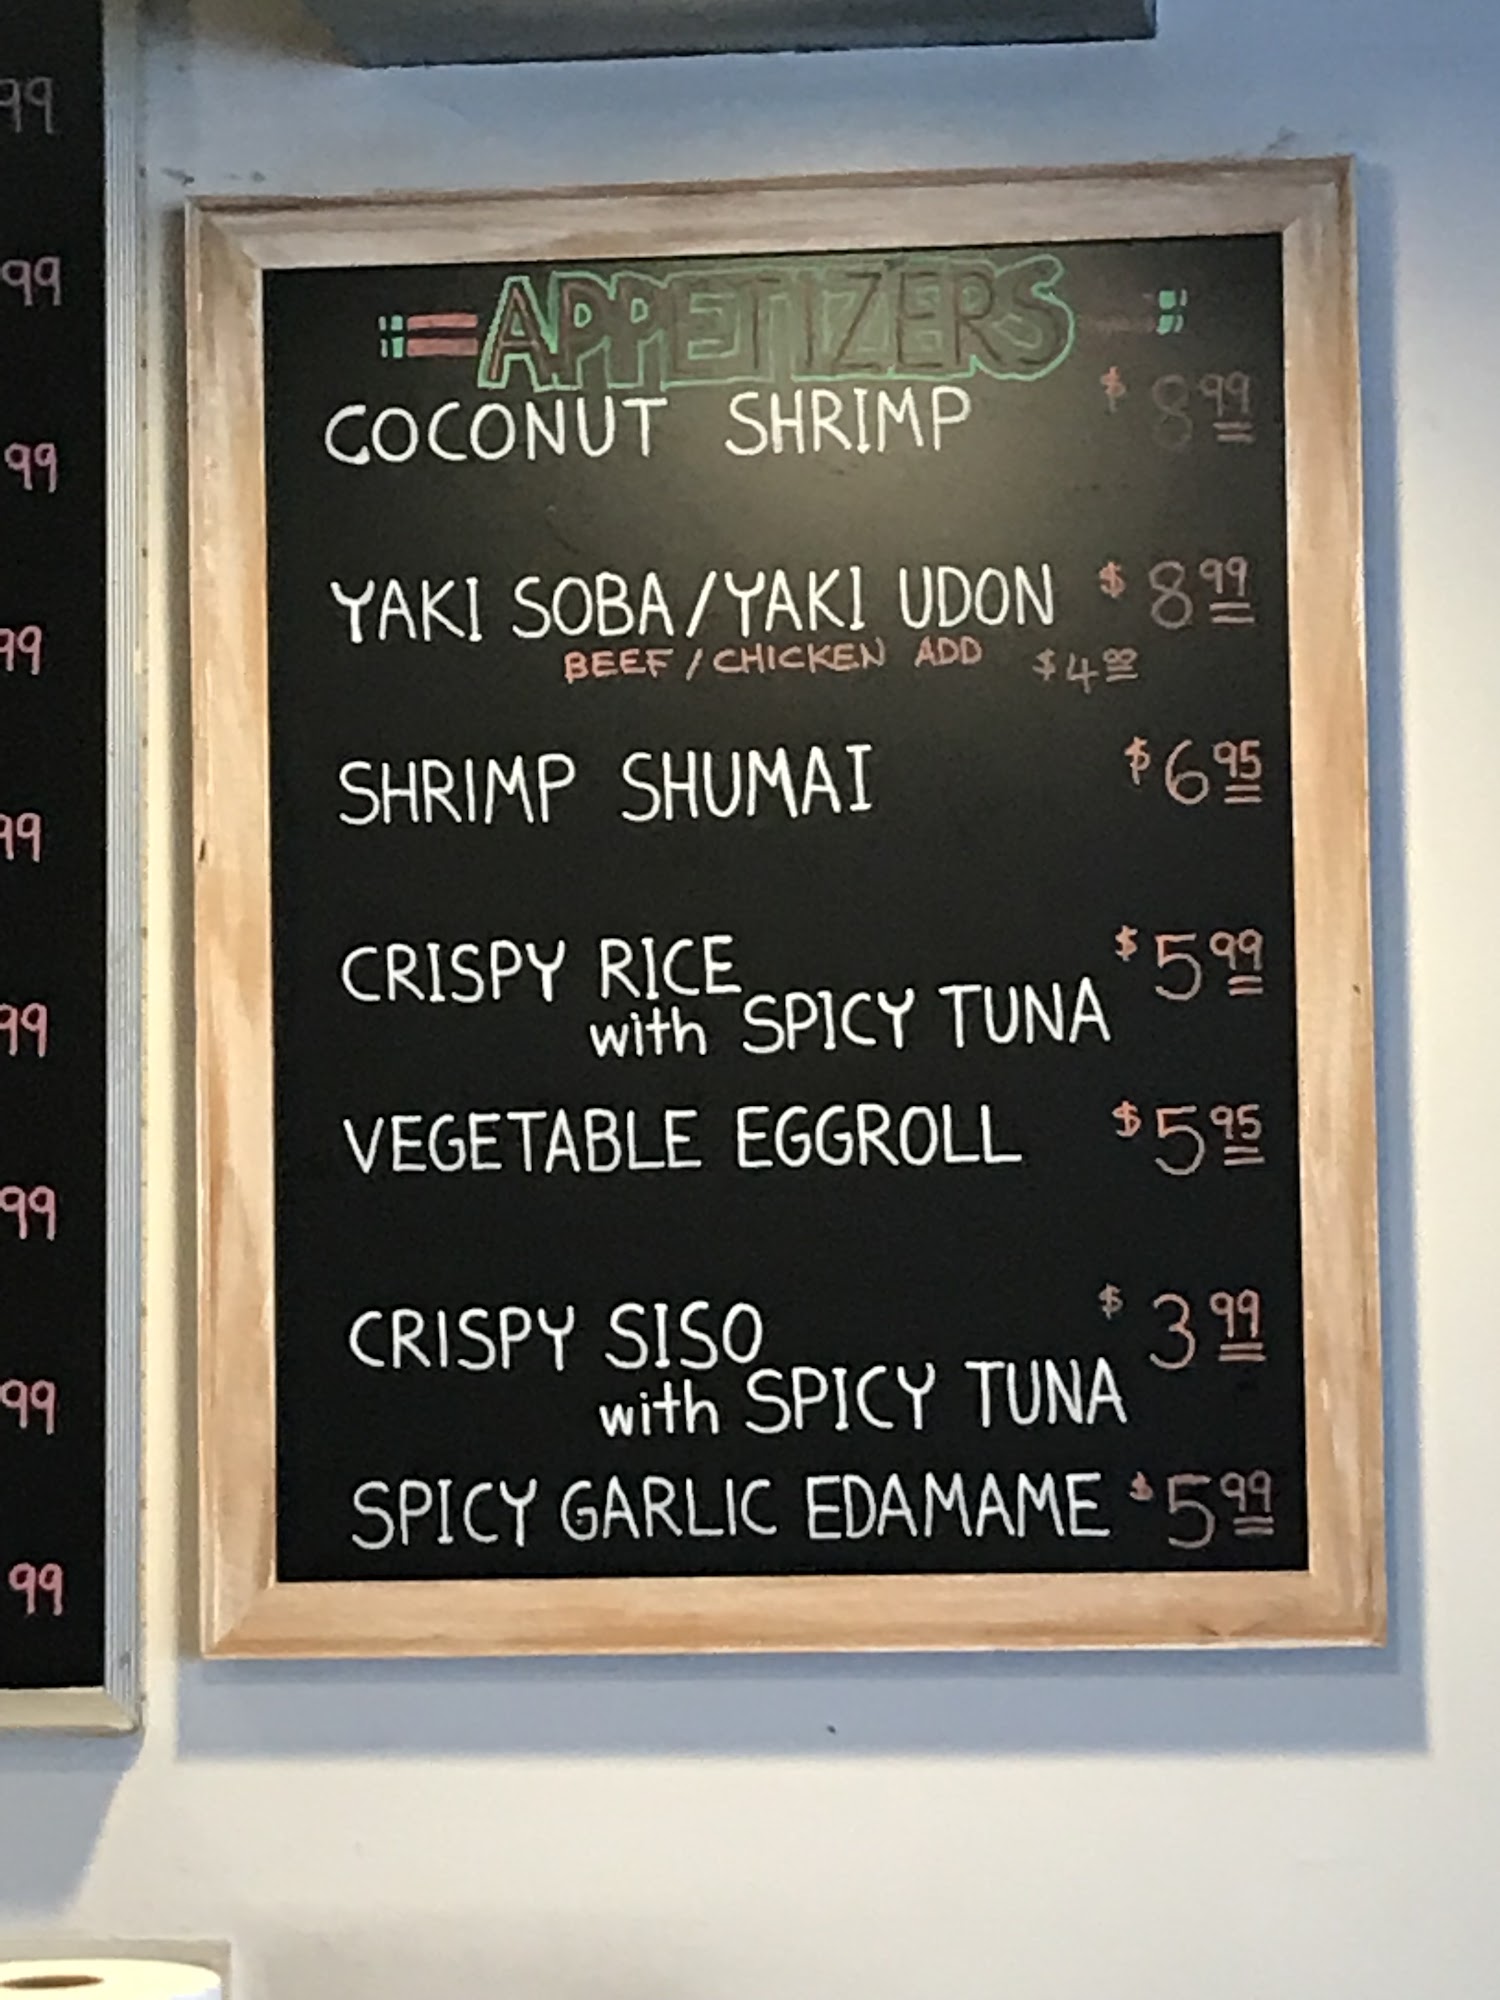 APPETIZERS
COCONUT SHRIMP $8.99
YAKI SOBA/YAKI UDON $8.99
BEEF/CHICKEN ADD $4.00
SHRIMP SHUMAI $6.95
CRISPY RICE $5.99
with SPICY TUNA
VEGETABLE EGGROLL $5.95
CRISPY SISO $3.99
with SPICY TUNA
SPICY GARLIC EDAMAME $5.99
99
99
99
99
99
99
99
99
99